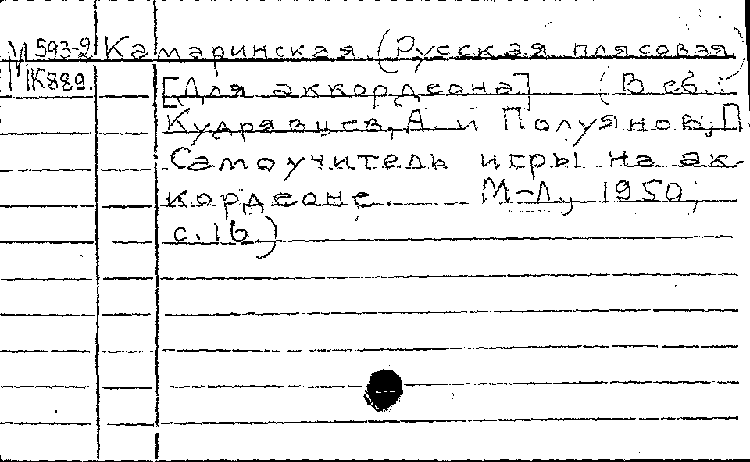 М 593-2 Камаринская. (Русская плясовая)
К889. [Для аккордеона] (В сб.:
Кудрявцев, А и Полуянов, П.
Самоучитель игры на ак-
кордеоне. М-Л, 1950,
с.16)